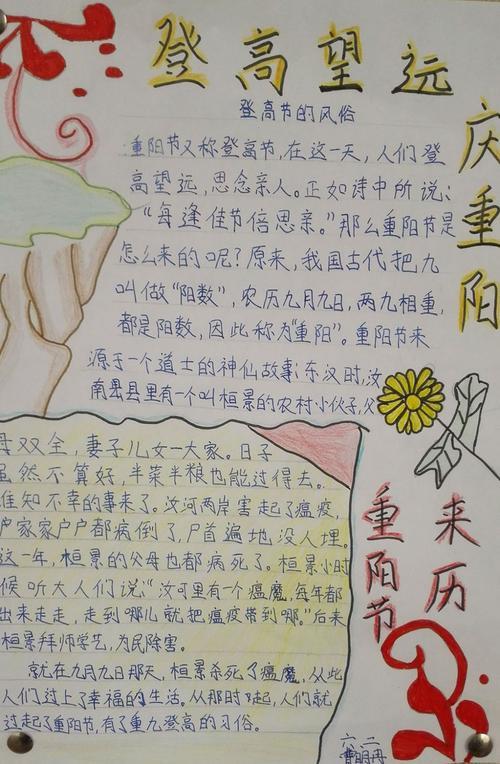 登高望远
庆重阳
登高节的风俗
重阳节又称登高节，在这一天，人们登
高望远，思念亲人。正如诗中所说：
“每逢佳节倍思亲。”那么重阳节是
怎么来的呢？原来，我国古代把九
叫做“阳数”，农历九月九日，两九相重，
都是阳数，因此称为“重阳”。重阳节来
源于一个道士的神仙故事：东汉时，汝
南县县里有一个叫桓景的农村小伙子，父
重阳节
来历
母双全，妻子儿女一大家。日子
虽然不算好，半菜半粮也能过得去。
谁知不幸的事来了。汝河两岸害起了瘟疫，
户家家户户都病倒了，尸首遍地，没人埋。
这一年，桓景的父母也都病死了。桓景小时
候听大人们说：“汝河里有一个瘟魔，每年都
出来走走，走到哪儿就把瘟疫带到哪。”后来
桓景拜师学艺，为民除害。
就在九月九日那天，桓景杀死了瘟魔，从此
人们过上了幸福的生活。从那时起，人们就
过起了重阳节，有了重九登高的习俗。
六二